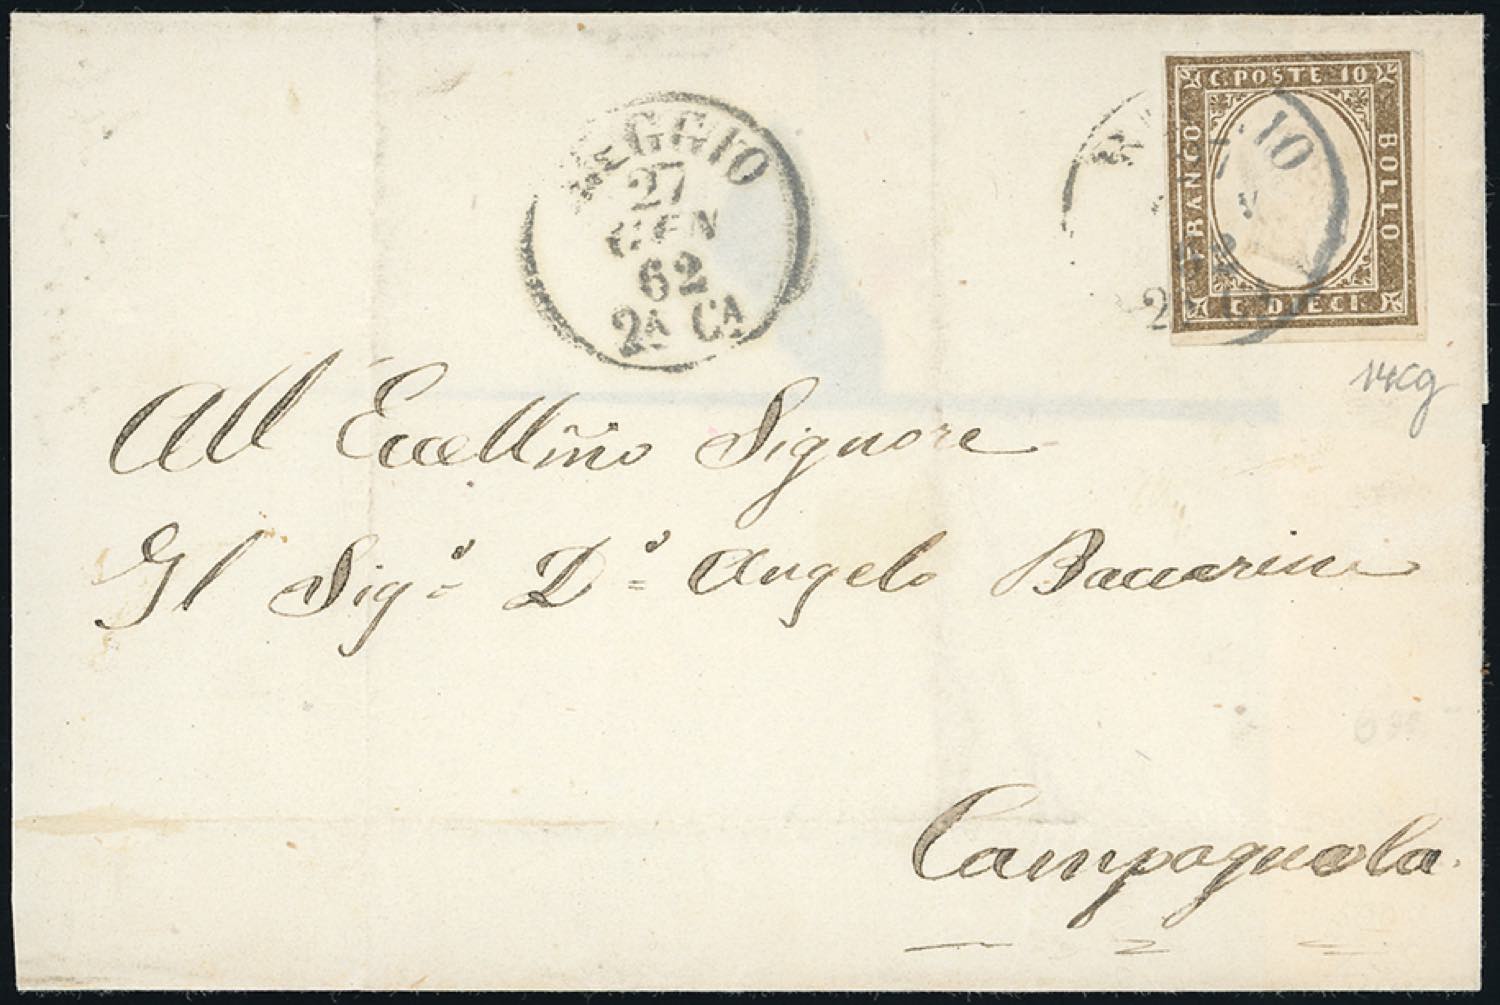 REGGIO
27
GEN
62
2A CA
C. POSTE 10
FRANCO
BOLLO
C. DIECI.
14Cg
All Eccellm̃o Signore
Il Sigr. Dr. Angelo Baccarini
Campagnola.